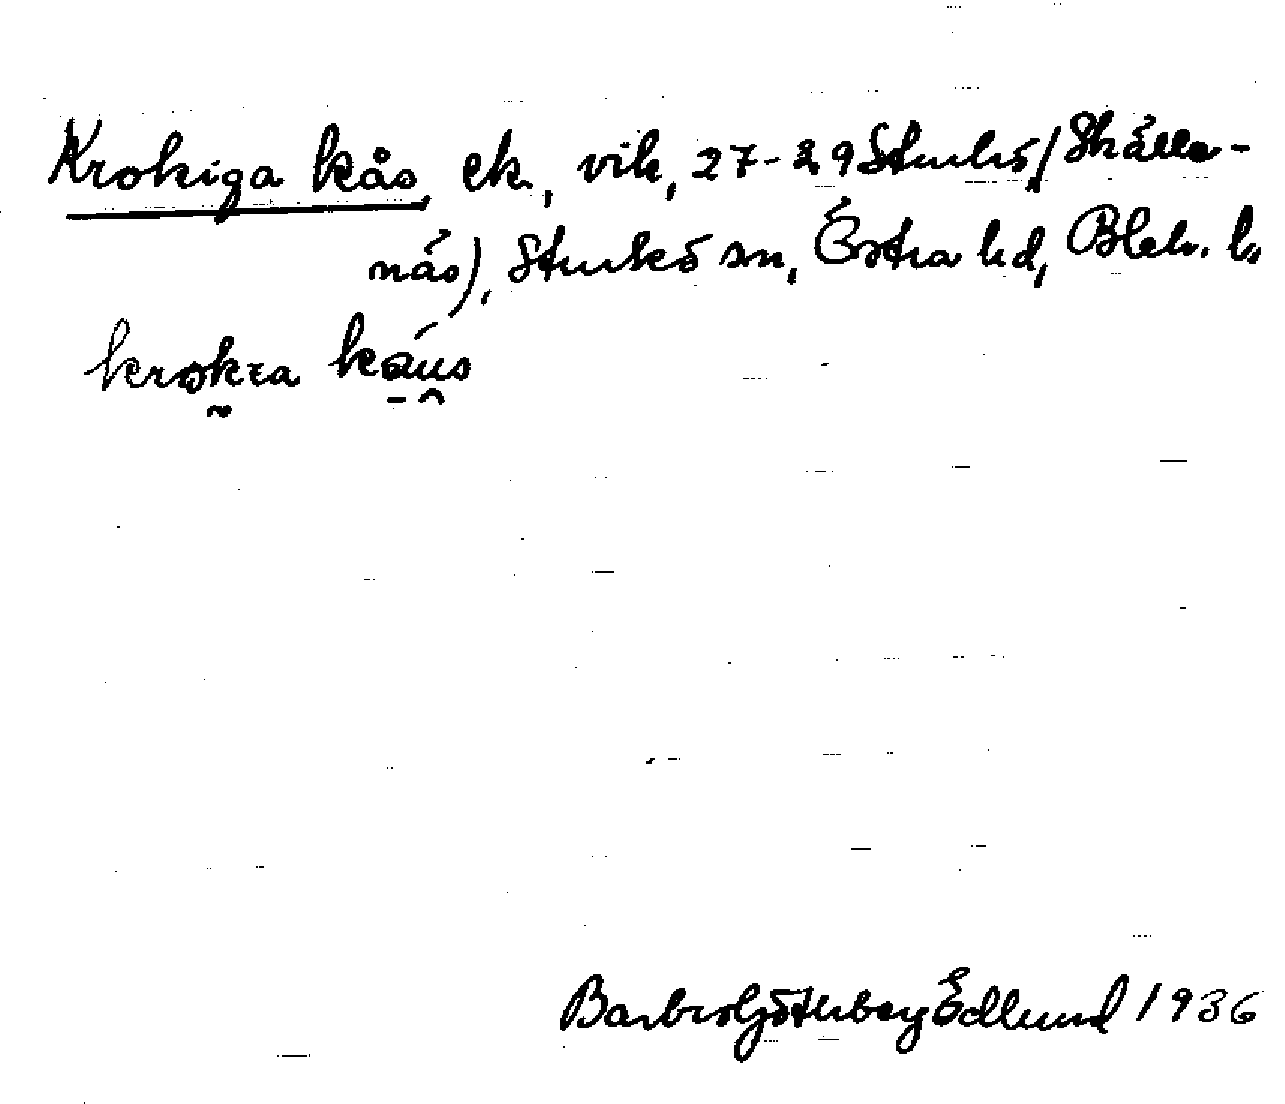 Krokiga kås, ek., vik, 27-29 Sturkö (Skälle-
näs), Sturkö sn, Östra hd, Blek. l.
krokra kåus
Barbro Götherberg Edlund 1936